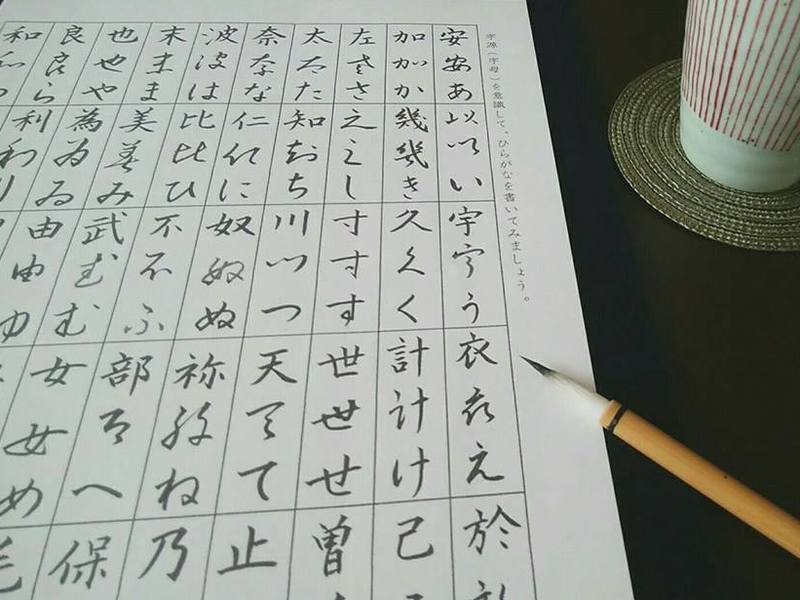 字源（字母）を意識して、ひらがなを書いてみましょう。
安安あ以以い宇宇う衣衣え於
加加か幾幾き久久く計計け己
左左さ之之し寸寸す世世せ曽
太太た知知ち川川つ天天て止
奈奈な仁仁に奴奴ぬ祢祢ね乃
波波は比比ひ不不ふ部部へ保
末末ま美美み武武む女女め毛
也也や為為ゐ由由ゆ
良良ら利利り
和和